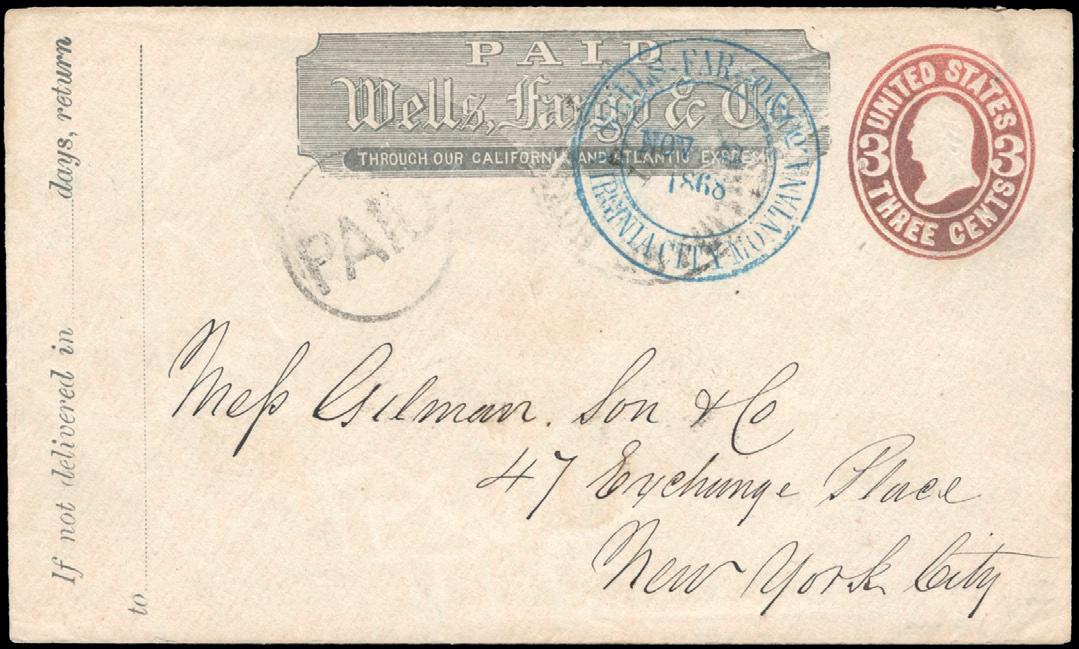 PAID
Wells, Fargo & Co.
THROUGH OUR CALIFORNIA AND ATLANTIC EXPRESS
WELLS, FARGO & CO.
NOV
1868
VIRGINIA CITY MONTANA
UNITED STATES
3 3
THREE CENTS
PAID
Mess Gilman. Son & Co
47 Exchange Place
New York City
If not delivered in days, return
to